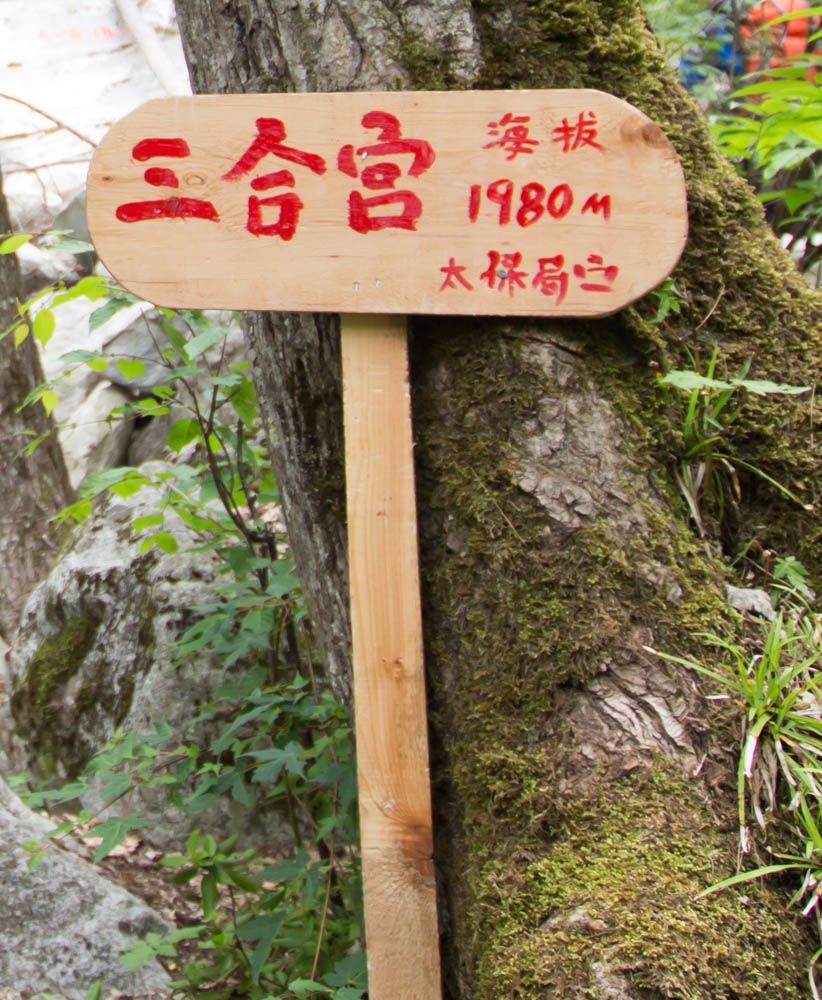 三合宫
海拔
1980m
太保局立